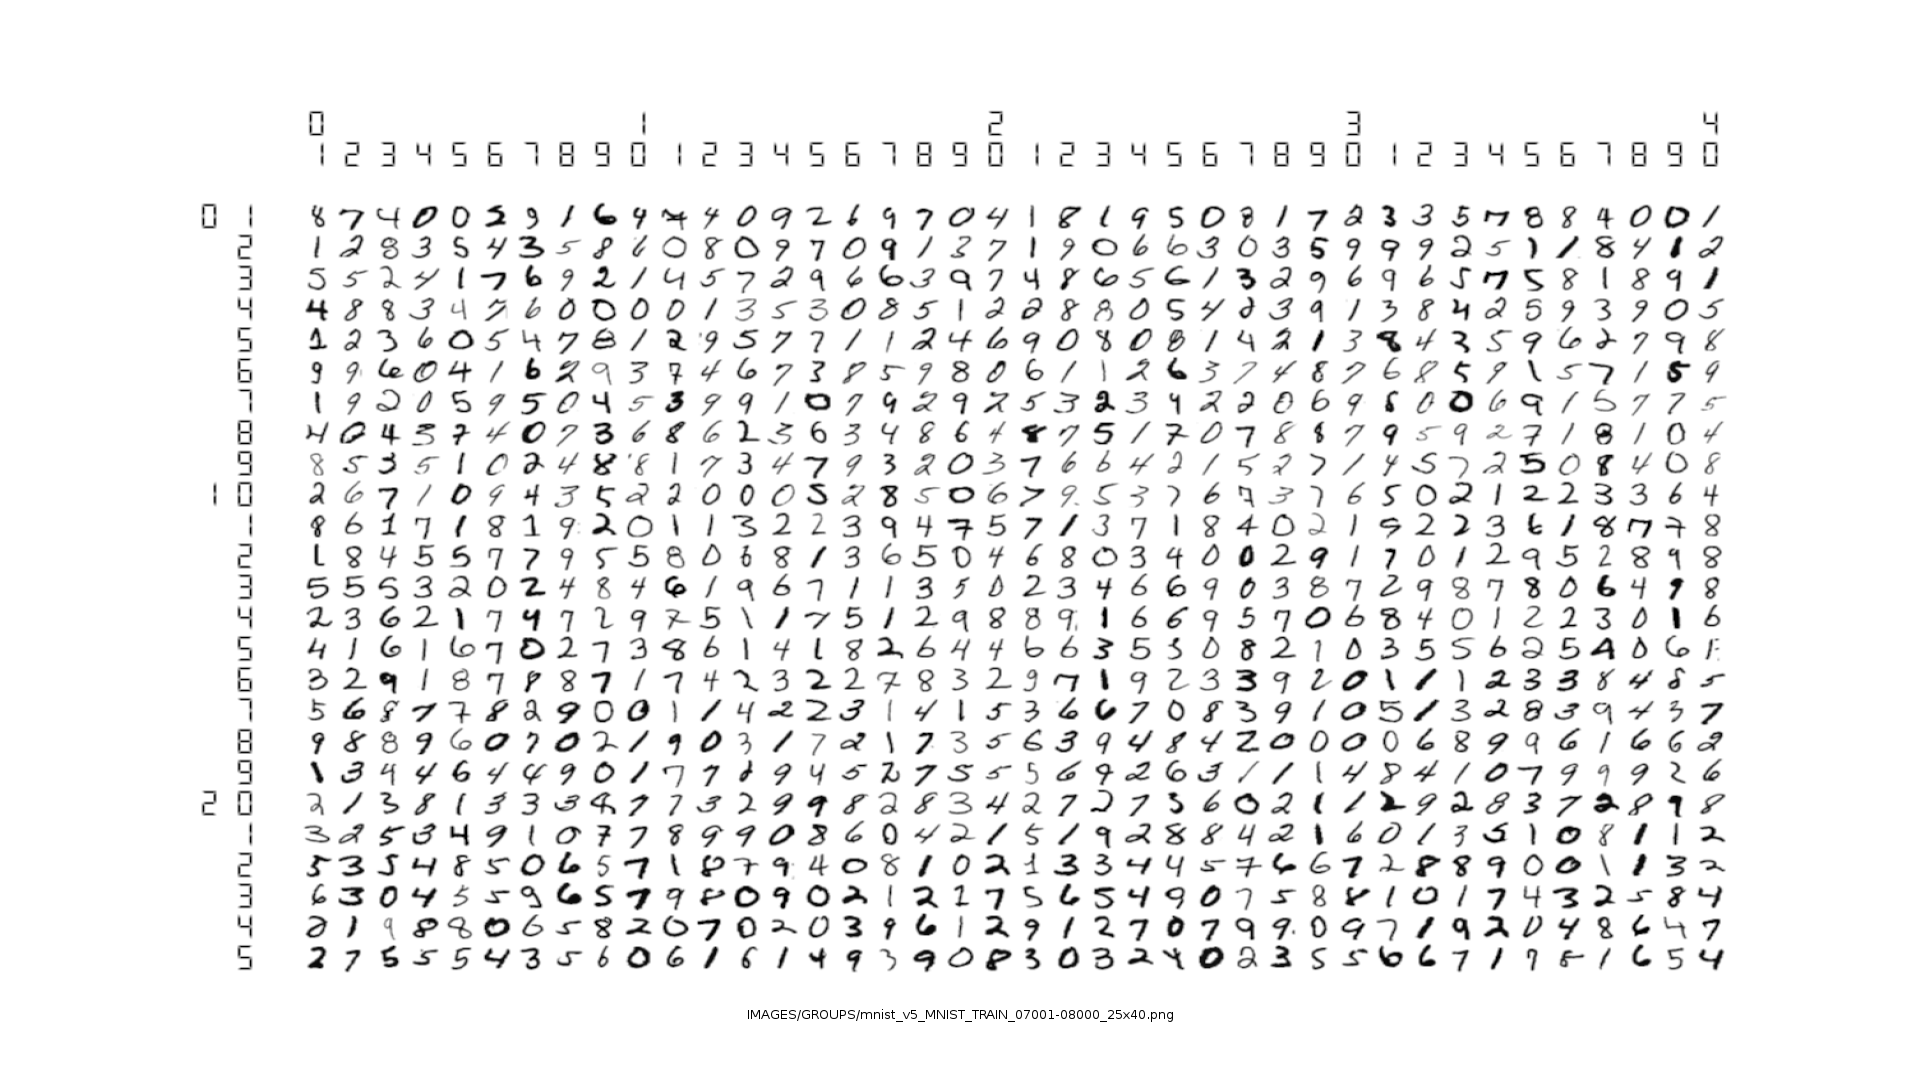 0 1 2 3 4
1 2 3 4 5 6 7 8 9 0 1 2 3 4 5 6 7 8 9 0 1 2 3 4 5 6 7 8 9 0 1 2 3 4 5 6 7 8 9 0
0 1 8 7 4 0 0 2 9 1 6 9 4 4 0 9 2 6 9 7 0 4 1 8 1 9 5 0 8 1 7 2 3 3 5 7 8 8 4 0 0 1
2 1 2 8 3 5 4 3 5 8 6 0 8 0 9 7 0 9 1 3 7 1 9 0 6 6 3 0 3 5 9 9 9 2 5 1 1 8 4 1 2
3 5 5 2 4 1 7 6 9 2 1 4 5 7 2 9 6 6 3 9 7 4 8 6 5 6 1 3 2 9 6 9 6 5 7 5 8 1 8 9 1
4 4 8 8 3 4 7 6 0 0 0 0 1 3 5 3 0 8 5 1 2 2 8 8 0 5 4 2 3 9 1 3 8 4 2 5 9 3 9 0 5
5 1 2 3 6 0 5 4 7 8 1 2 9 5 7 7 1 1 2 4 6 9 0 8 0 8 1 4 2 1 3 8 4 3 5 9 6 2 7 9 8
6 9 9 6 0 4 1 6 2 9 3 7 4 6 7 3 8 5 9 8 0 6 1 1 2 6 3 7 4 8 7 6 8 5 9 1 5 7 1 5 9
7 1 9 2 0 5 9 5 0 4 5 3 9 9 1 0 7 9 2 9 2 5 3 2 3 4 2 2 0 6 9 8 0 0 6 9 1 5 7 7 5
8 4 0 4 3 7 4 0 7 3 6 8 6 2 3 6 3 4 8 6 4 8 7 5 1 7 0 7 8 8 7 9 5 9 2 7 1 8 1 0 4
9 8 5 3 5 1 0 2 4 8 8 1 7 3 4 7 9 3 2 0 3 7 6 6 4 2 1 5 2 7 1 4 5 7 2 5 0 8 4 0 8
1 0 2 6 7 1 0 9 4 3 5 2 2 0 0 0 5 2 8 5 0 6 7 9 5 3 7 6 7 3 7 6 5 0 2 1 2 2 3 3 6 4
1 8 6 1 7 1 8 1 9 2 0 1 1 3 2 2 3 9 4 7 5 7 1 3 7 1 8 4 0 2 1 9 2 2 3 6 1 8 7 7 8
2 1 8 4 5 5 7 7 9 5 5 8 0 6 8 1 3 6 5 0 4 6 8 0 3 4 0 0 2 9 1 7 0 1 2 9 5 2 8 9 8
3 5 5 5 3 2 0 2 4 8 4 6 1 9 6 7 1 1 3 5 0 2 3 4 6 6 9 0 3 8 7 2 9 8 7 8 0 6 4 9 8
4 2 3 6 2 1 7 4 7 2 9 7 5 1 1 7 5 1 2 9 8 8 9 1 6 6 9 5 7 0 6 8 4 0 1 2 2 3 0 1 6
5 4 1 6 1 6 7 0 2 7 3 8 6 1 4 1 8 2 6 4 4 6 6 3 5 3 0 8 2 1 0 3 5 5 6 2 5 4 0 6 1
6 3 2 9 1 8 7 8 8 7 1 7 4 2 3 2 2 7 8 3 2 9 7 1 9 2 3 3 9 2 0 1 1 1 2 3 3 8 4 8 5
7 5 6 8 7 7 8 2 9 0 0 1 1 4 2 2 3 1 4 1 5 3 6 6 7 0 8 3 9 1 0 5 1 3 2 8 3 9 4 3 7
8 9 8 8 9 6 0 7 0 2 1 9 0 3 1 7 2 1 7 3 5 6 3 9 4 8 4 2 0 0 0 0 6 8 9 9 6 1 6 6 2
9 1 3 4 4 6 4 4 9 0 1 7 7 2 9 4 5 2 7 5 5 5 6 9 2 6 3 1 1 1 4 8 4 1 0 7 9 9 9 2 6
2 0 2 1 3 8 1 3 3 3 4 7 7 3 2 9 9 8 2 8 3 4 2 7 2 7 3 6 0 2 1 1 2 9 2 8 3 7 2 8 9 8
1 3 2 5 3 4 9 1 0 7 7 8 9 9 0 8 6 0 4 2 1 5 1 9 2 8 8 4 2 1 6 0 1 3 5 1 0 8 1 1 2
2 5 3 5 4 8 5 0 6 5 7 1 8 7 9 4 0 8 1 0 2 1 3 3 4 4 5 7 6 6 7 2 8 8 9 0 0 1 1 3 2
3 6 3 0 4 5 5 9 6 5 7 9 8 0 9 0 2 1 2 1 7 5 6 5 4 9 0 7 5 8 8 1 0 1 7 4 3 2 5 8 4
4 2 1 9 8 8 0 6 5 8 2 0 7 0 2 0 3 9 6 1 2 9 1 2 7 0 7 9 9 0 9 7 1 9 2 0 4 8 6 4 7
5 2 7 5 5 5 4 3 5 6 0 6 1 6 1 4 9 3 9 0 8 3 0 3 2 4 0 2 3 5 5 6 6 7 1 7 5 1 6 5 4
IMAGES/GROUPS/mnist_v5_MNIST_TRAIN_07001-08000_25x40.png